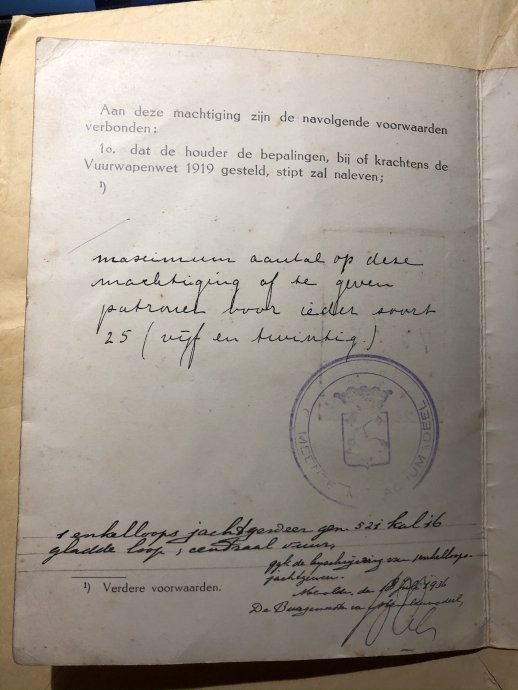 Aan deze machtiging zijn de navolgende voorwaarden
verbonden:
1o. dat de houder de bepalingen, bij of krachtens de
Vuurwapenwet 1919 gesteld, stipt zal naleven;
¹)
maximum aantal op deze
machtiging af te geven
patronen voor ieder soort
25 (vijf en twintig)
1 enkelloops jachtgeweer gem. 521 kal 16
gladde loop, centraal vuur,
gpk de bijschrijving van 1 enkelloops
jachtgeweer.
den Juli 1936
¹) Verdere voorwaarden.
De Burgemeester van